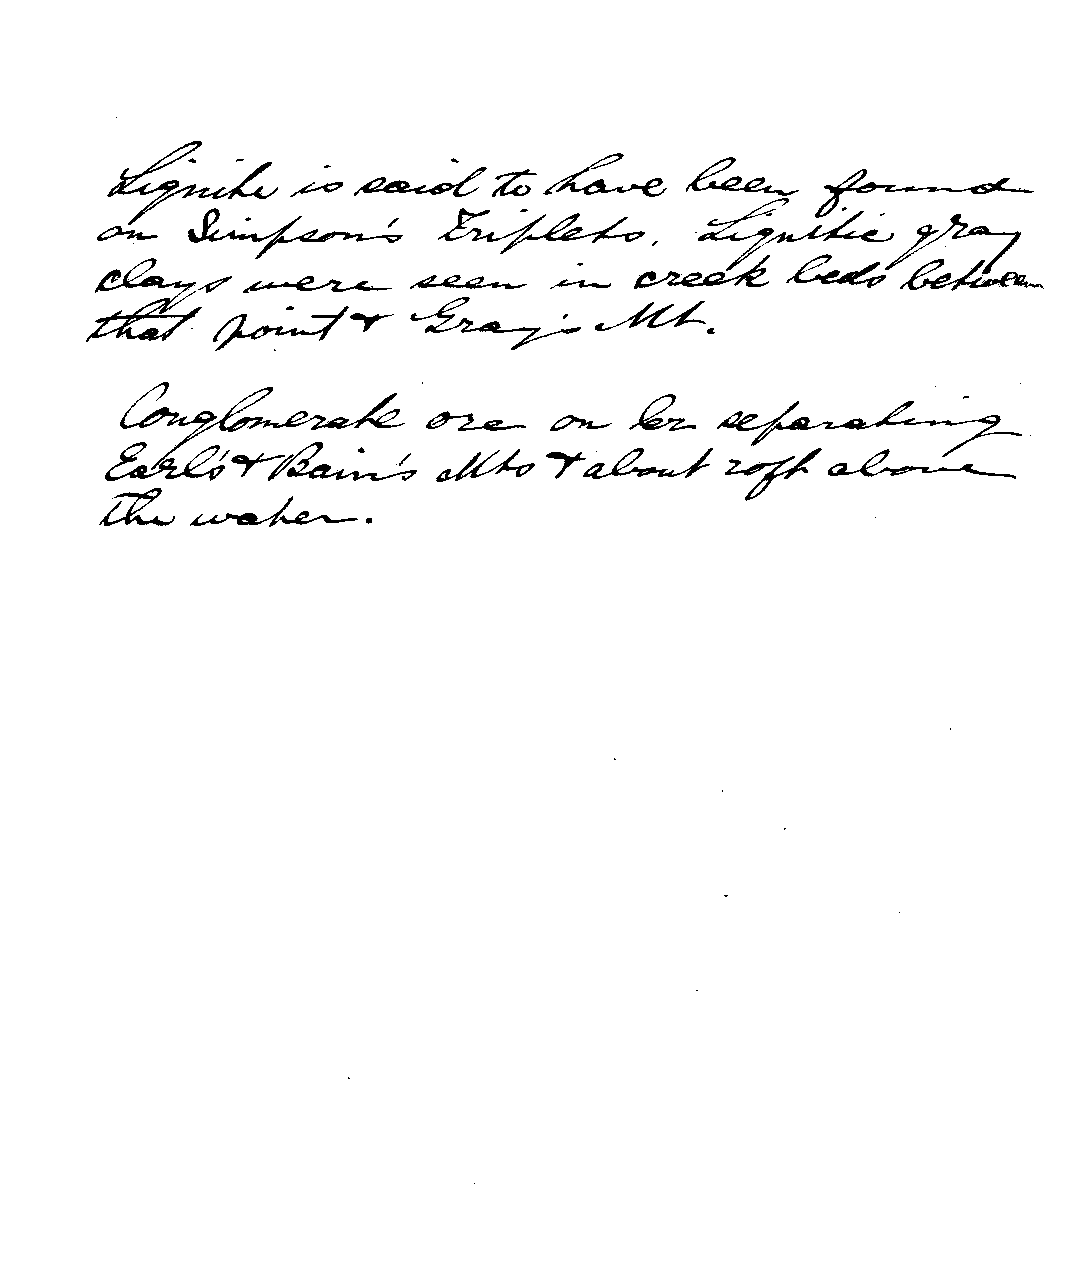 Lignite is said to have been found
on Simpson's Triplets. Lignitic gray
clays were seen in creek beds between
that point & Gray's Mt.
Conglomerate ore on separating
Earl's & Bain's Mts & about 20ft above
the water.